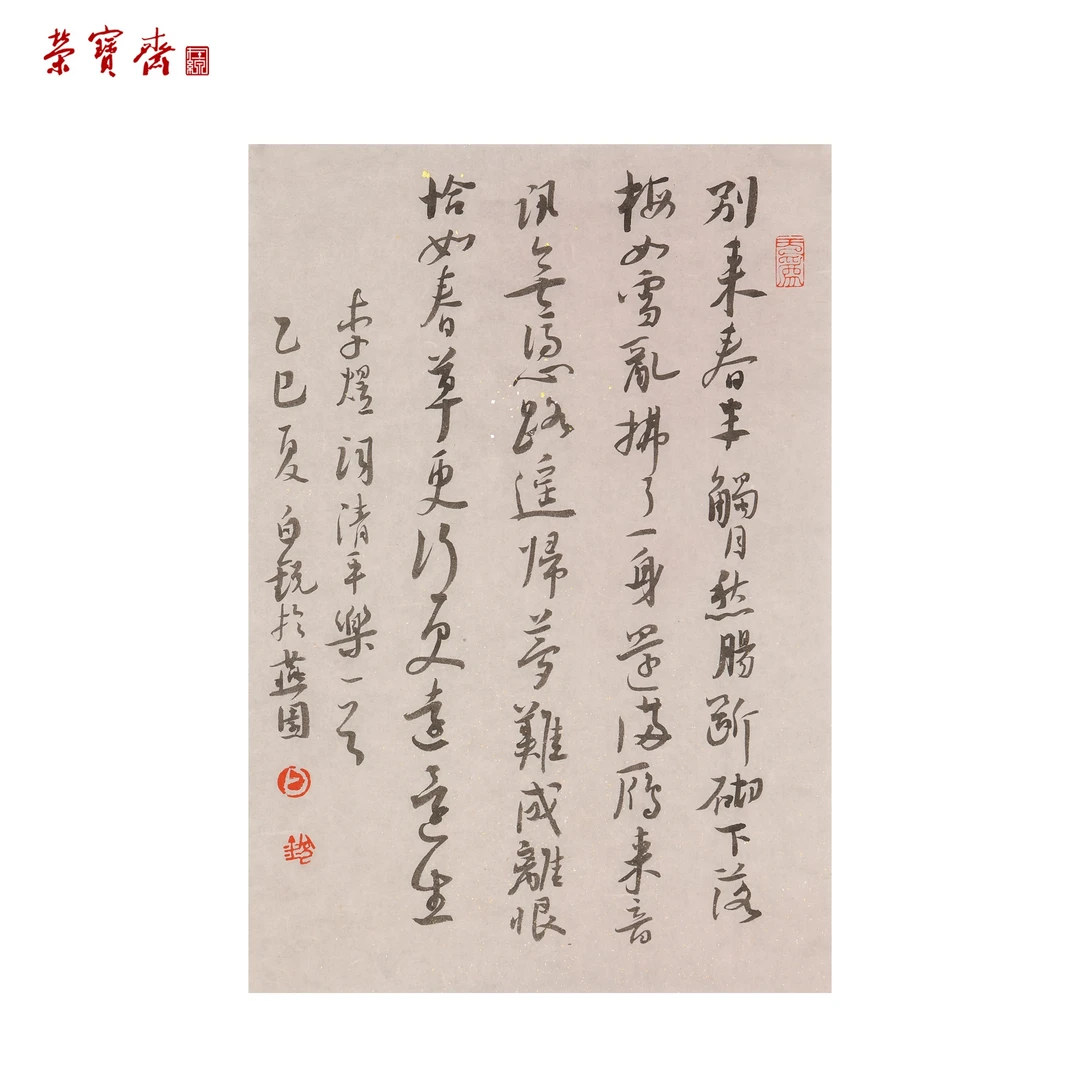 榮寶齋
在線
別来春半觸目愁腸斷砌下落
梅如雪亂拂了一身還滿雁来音
訊無憑路遥帰夢難成離恨
恰如春草更行更遠還生
李煜詞清平樂一首
乙巳夏白銳於燕園
白
銳